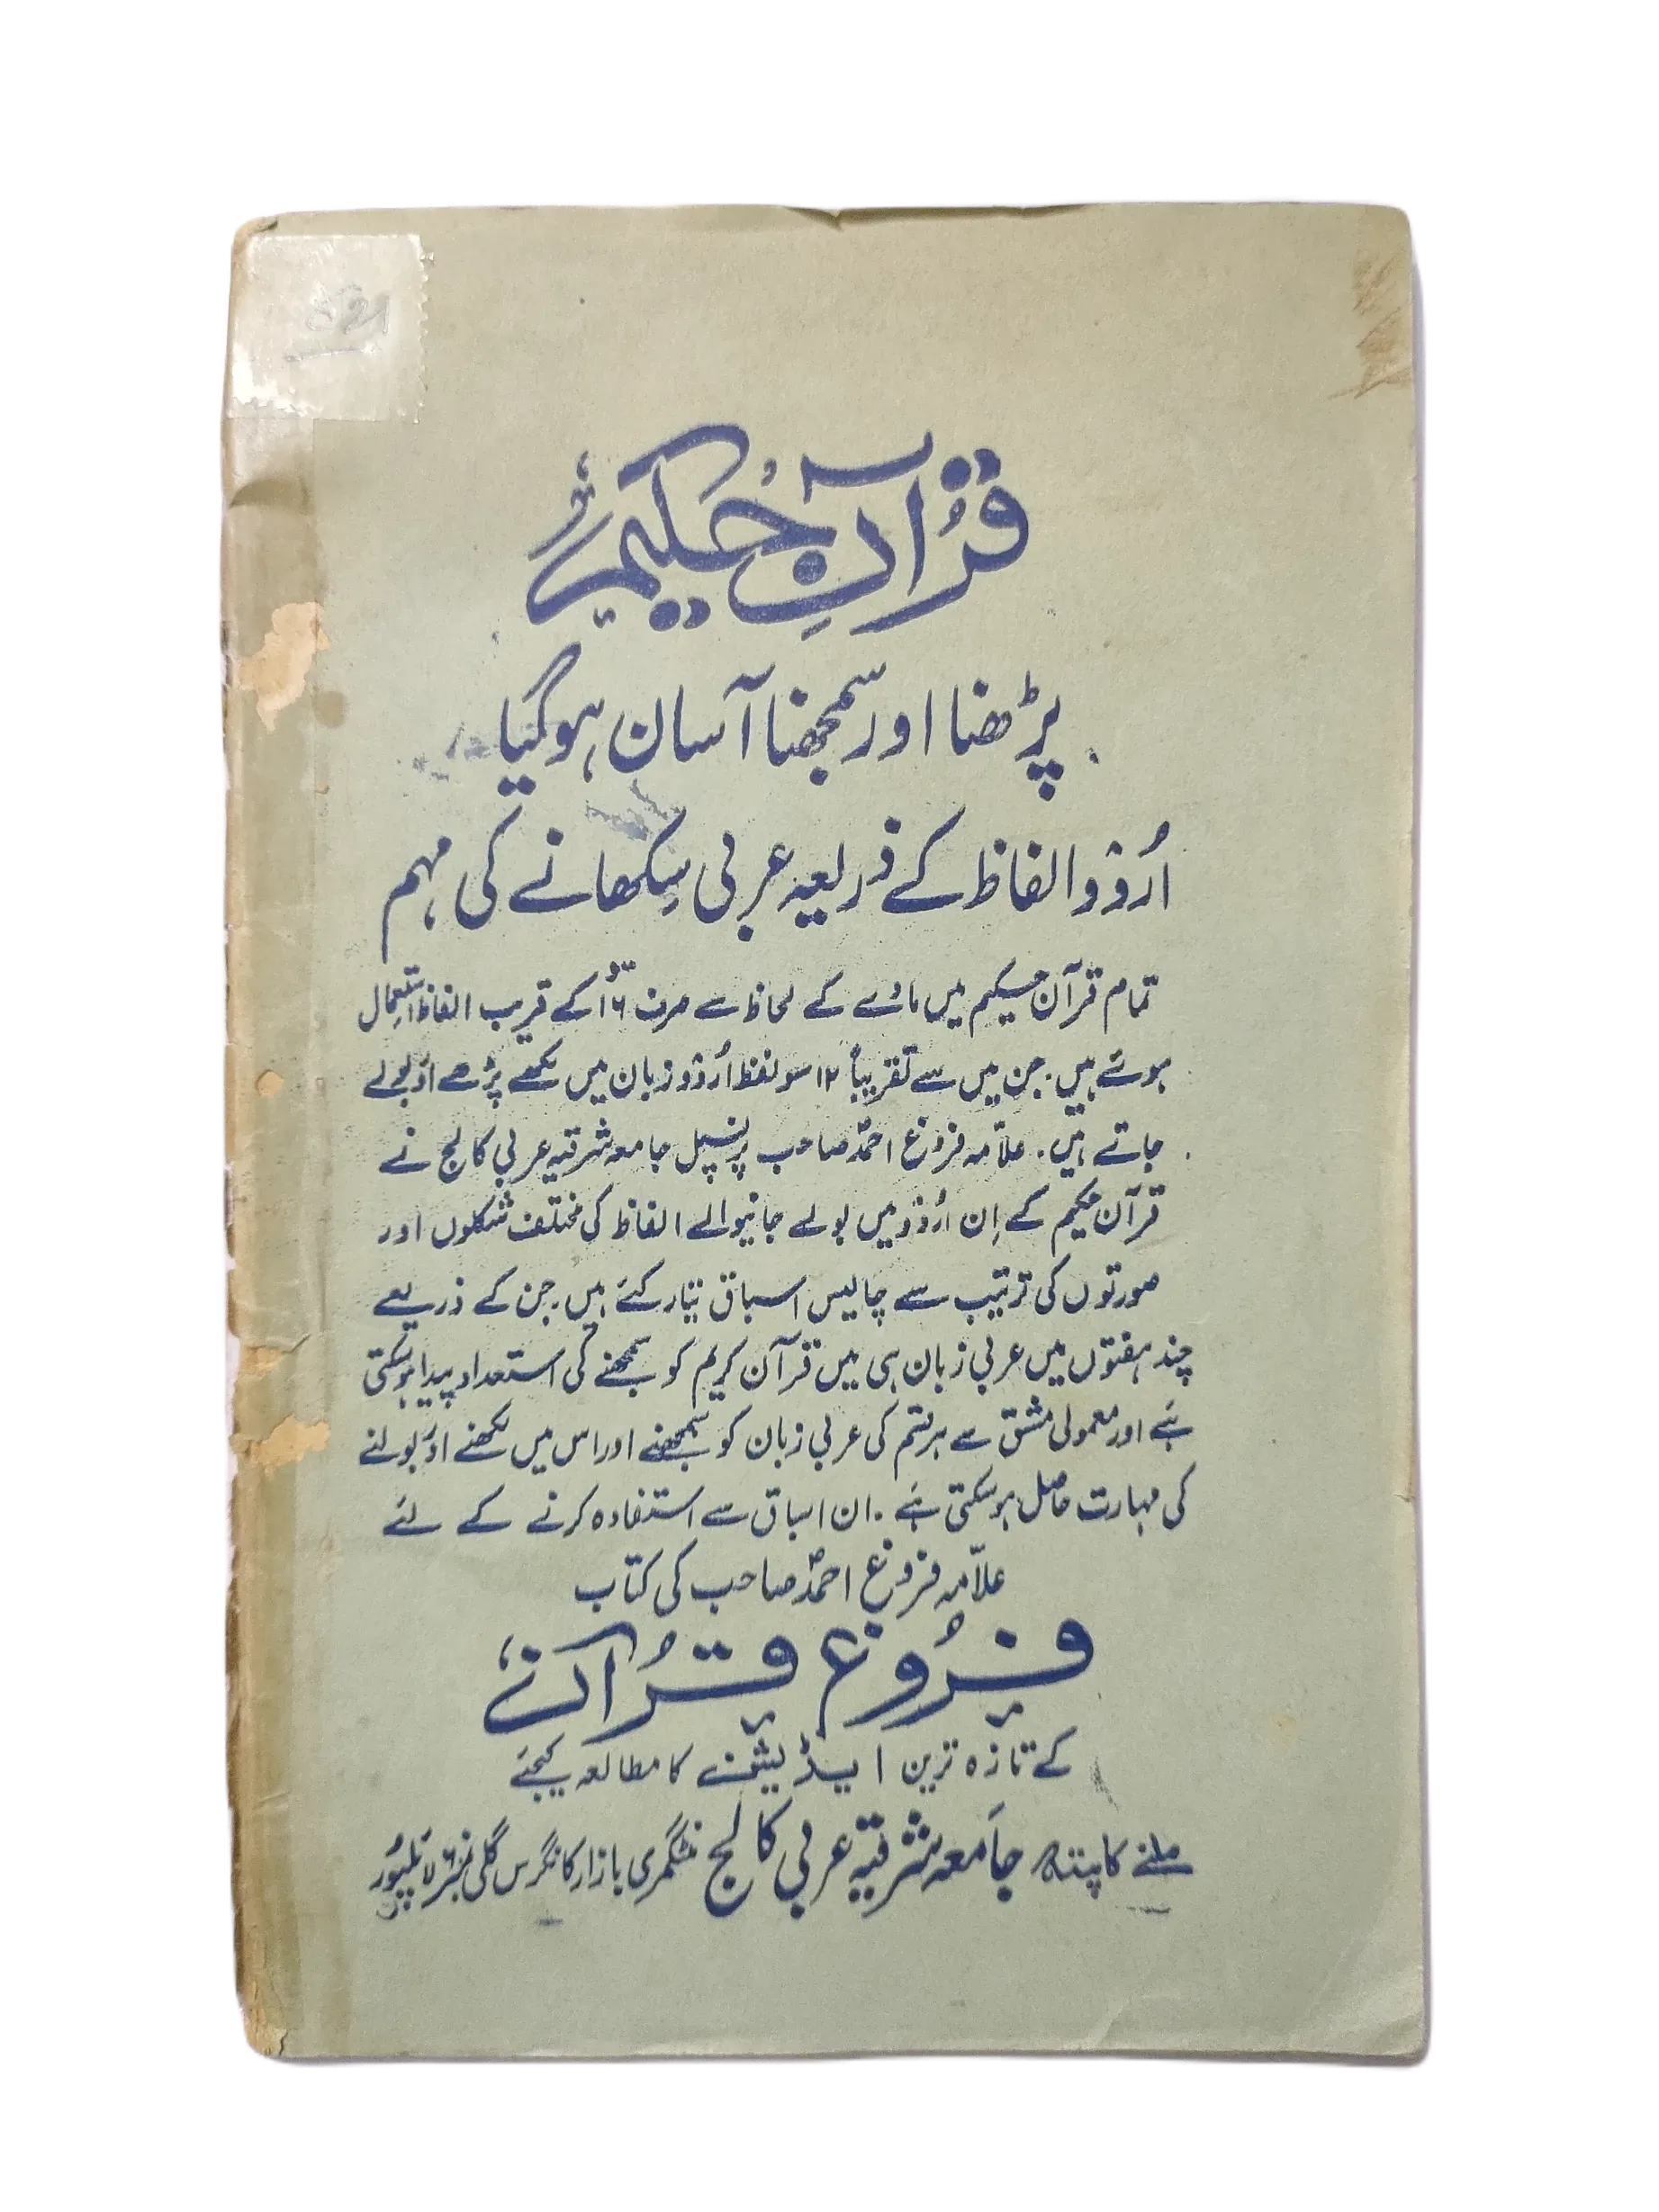 قرآنِ حکیم
پڑھنا اور سمجھنا آسان ہوگیا
اُردُو الفاظ کے ذریعہ عربی سِکھانے کی مہم
تمام قرآن حکیم میں مادّے کے لحاظ سے صرف ۱۶ سو کے قریب الفاظ استعمال
ہوئے ہیں. جن میں سے تقریباً ۱۲ سو لفظ اُردُو زبان میں لکھے پڑھے اور بولے
جاتے ہیں. علاّمہ فروغ احمد صاحب پرنسپل جامعہ شرقیہ عربی کالج نے
قرآن حکیم کے اِن اُردُو میں بولے جانیوالے الفاظ کی مختلف شکلوں اور
صورتوں کی ترتیب سے چالیس اسباق تیار کئے ہیں. جن کے ذریعے
چند ہفتوں میں عربی زبان ہی میں قرآن کریم کو سمجھنے کی استعداد پیدا ہوسکتی
ہے اور معمولی مشق سے ہر قسم کی عربی زبان کو سمجھنے اور اس میں لکھنے اور بولنے
کی مہارت حاصل ہوسکتی ہے. ان اسباق سے استفادہ کرنے کے لئے
علاّمہ فروغ احمد صاحب کی کتاب
فروُغِ قرُآن
کے تازہ ترین ایڈیشن کا مطالعہ کیجئے
ملنے کا پتہ جامعہ شرقیہ عربی کالج منٹگمری بازار کانگرس گلی نمبر ۶ لائلپور